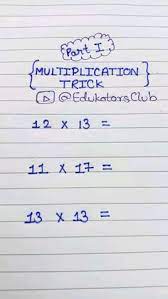 Part I
MULTIPLICATION
TRICK
@EdukatorsClub
12 x 13 =
11 x 17 =
13 x 13 =